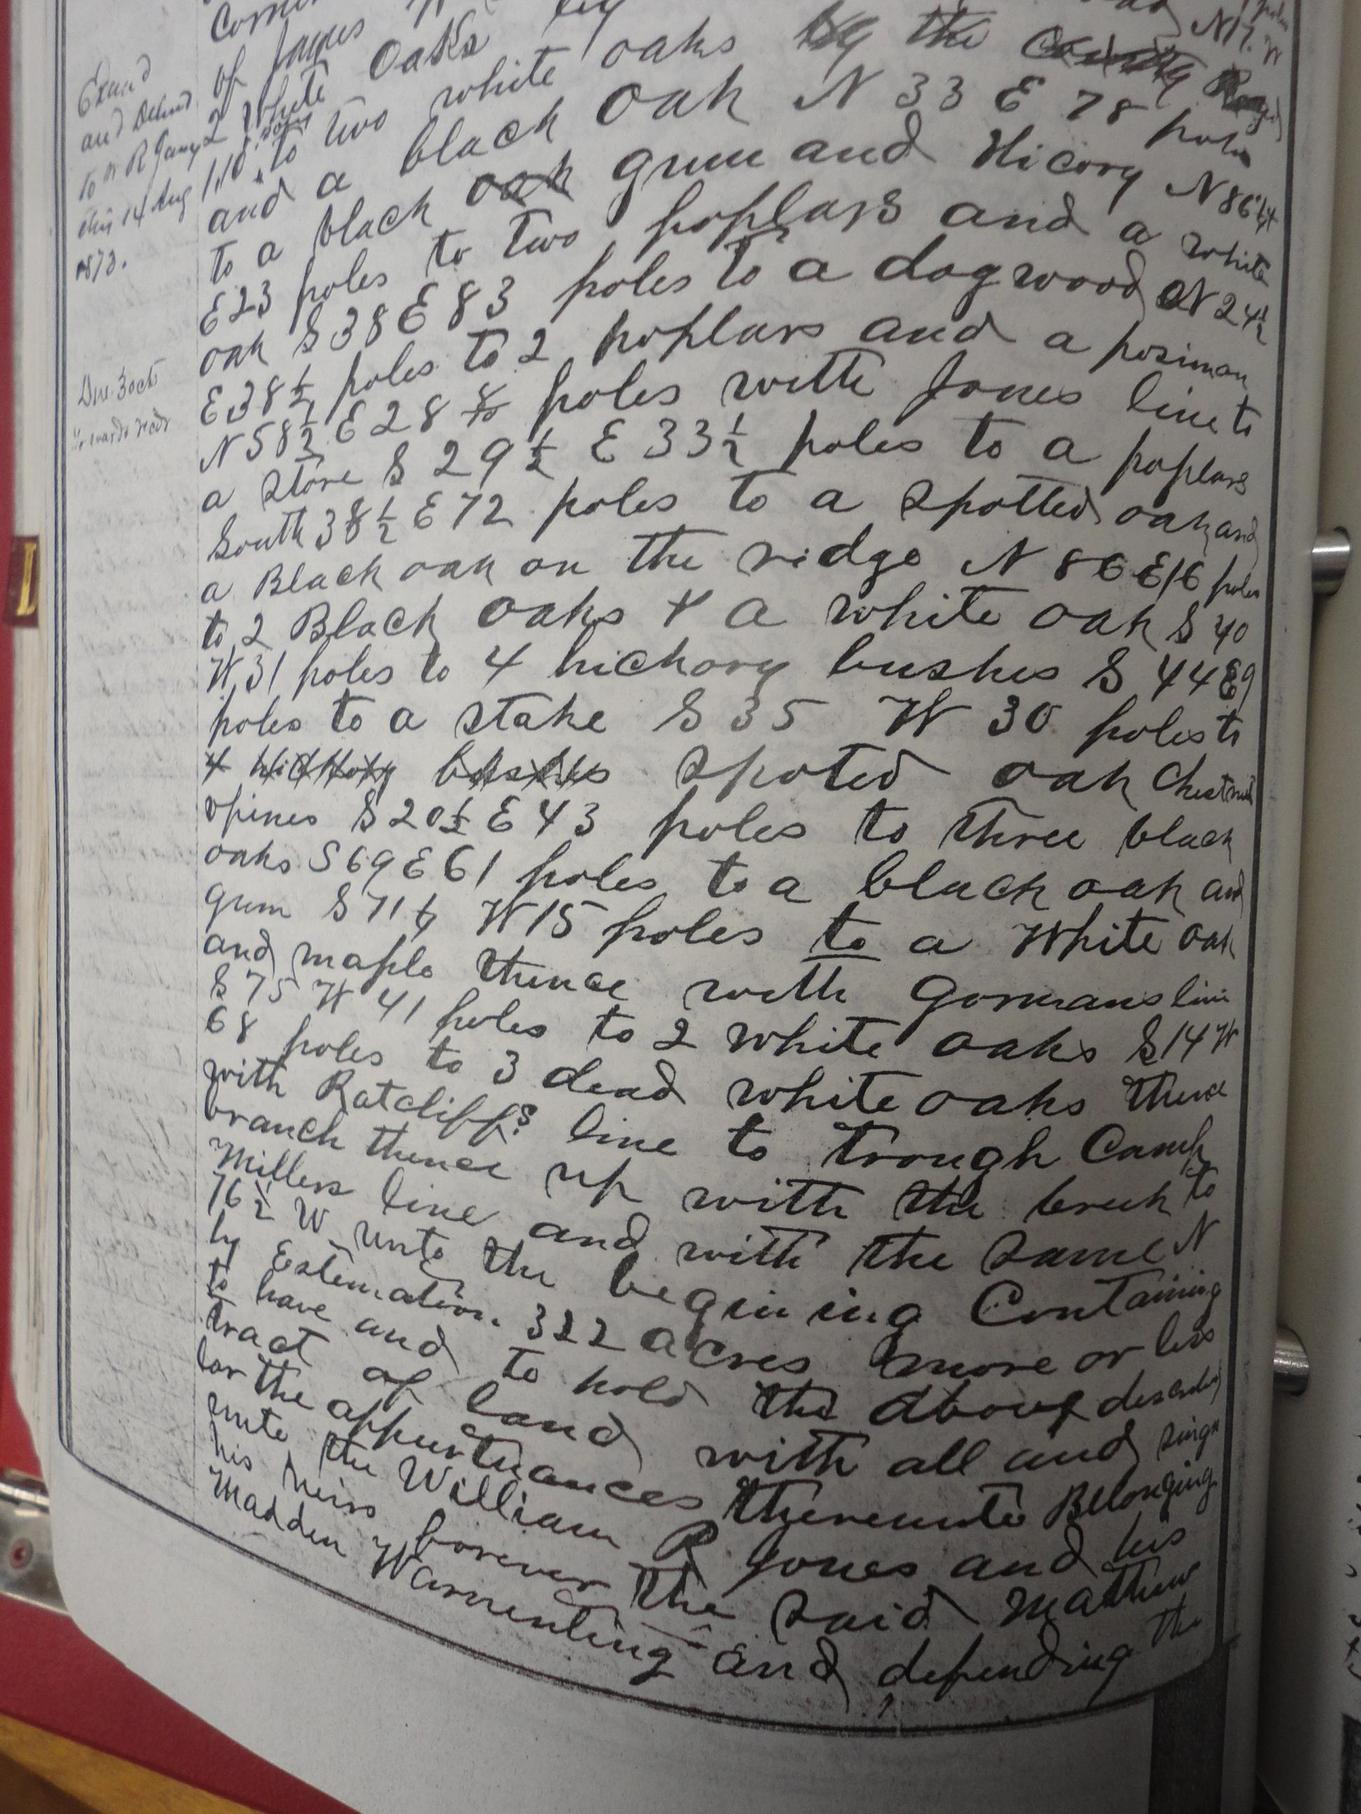 of James
2 White Oaks
to two white oaks by the County Road
and a black oak N 33 E 78 poles
to a black oak gum and Hicory N 86 1/4
E 23 poles to two poplars and a white
oak S 38 E 83 poles to a dogwood N 24 1/2
E 38 1/2 poles to 2 poplars and a posiman
N 58 1/2 E 28 poles with Jones line to
a stone S 29 1/2 E 33 1/2 poles to a poplars
South 38 1/2 E 72 poles to a spotted oak and
a Black oak on the ridge N 86 E 16 poles
to 2 Black oaks & a white oak S 40
W 31 poles to 4 hickory bushes S 44 E 9
poles to a stake S 35 W 30 poles to
4 hickory bushes spoted oak Chestnut
& pines S 20 1/2 E 43 poles to three black
oaks S 69 E 61 poles to a black oak and
gum S 71 W 15 poles to a White oak
and maple thence with Gormans line
S 75 W 41 poles to 2 white oaks S 14 W
68 poles to 3 dead white oaks thence
with Ratcliffs line to trough Camp
branch thence up with the creek to
Millers line and with the same N
76 1/2 W unto the begining Containing
by Estimation 322 acres more or less
to have and to hold the above described
tract of land with all and singu
lar the appurtuances thereunto Belonging
unto the William R Jones and his
his heirs forever the said Matthew
Madden Warrenting and defending the
Exam
and Delivd
to W R Jones
this 14 Aug
1873.